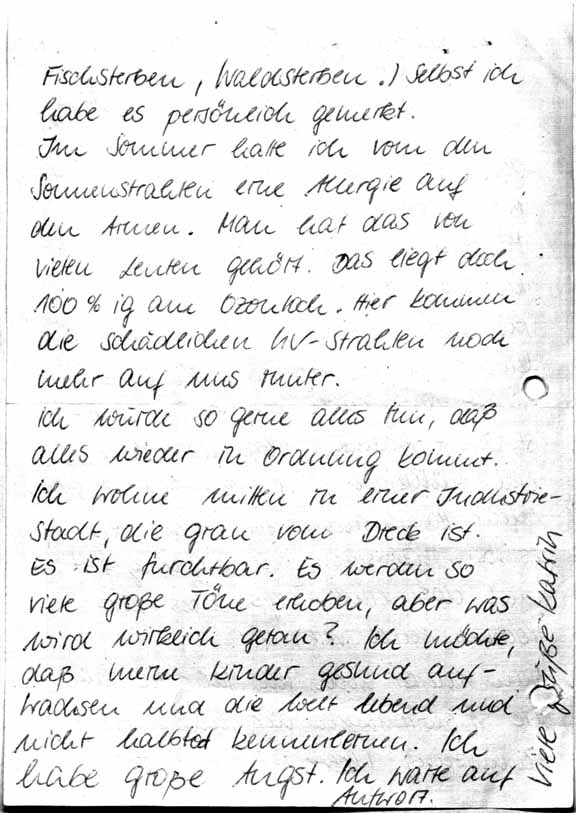 Fischsterben, Waldsterben.) Selbst ich
habe es persönlich gemerkt.
Im Sommer hatte ich von den
Sonnenstrahlen eine Allergie auf
den Armen. Man hat das von
vielen Leuten gehört. Das liegt doch
100%ig am Ozonloch. Hier kommen
die schädlichen UV-Strahlen noch
mehr auf uns runter.
Ich würde so gerne alles tun, daß
alles wieder in Ordnung kommt.
Ich wohne mitten in einer Industrie-
stadt, die grau vom Dreck ist.
Es ist furchtbar. Es werden so
viele große Töne erhoben, aber was
wird wirklich getan? Ich möchte,
daß meine Kinder gesund auf-
wachsen und die Welt lebend und
nicht halbtot kennenlernen. Ich
habe große Angst. Ich warte auf
Antwort.
Viele Grüße Katrin